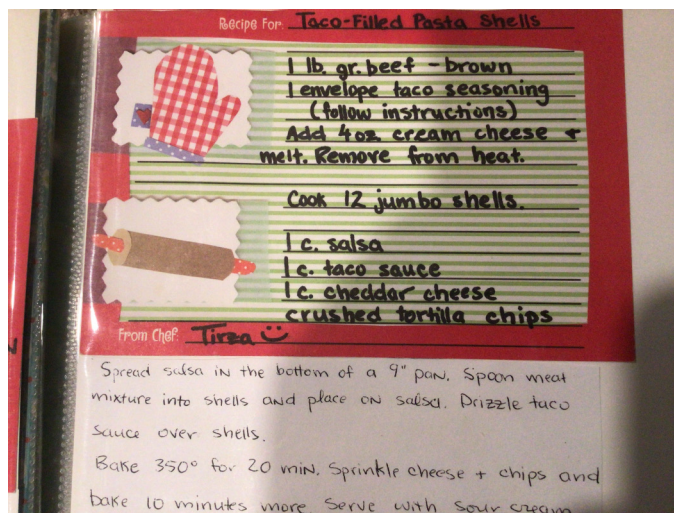 Recipe For: Taco-Filled Pasta Shells
1 lb. gr. beef - brown
1 envelope taco seasoning
(follow instructions)
Add 4oz. cream cheese &
melt. Remove from heat.
Cook 12 jumbo shells.
1 c. salsa
1 c. taco sauce
1 c. cheddar cheese
crushed tortilla chips
From Chef: Tirza
Spread salsa in the bottom of a 9" pan. Spoon meat
mixture into shells and place on salsa. Drizzle taco
sauce over shells.
Bake 350° for 20 min. Sprinkle cheese + chips and
bake 10 minutes more. Serve with sour cream